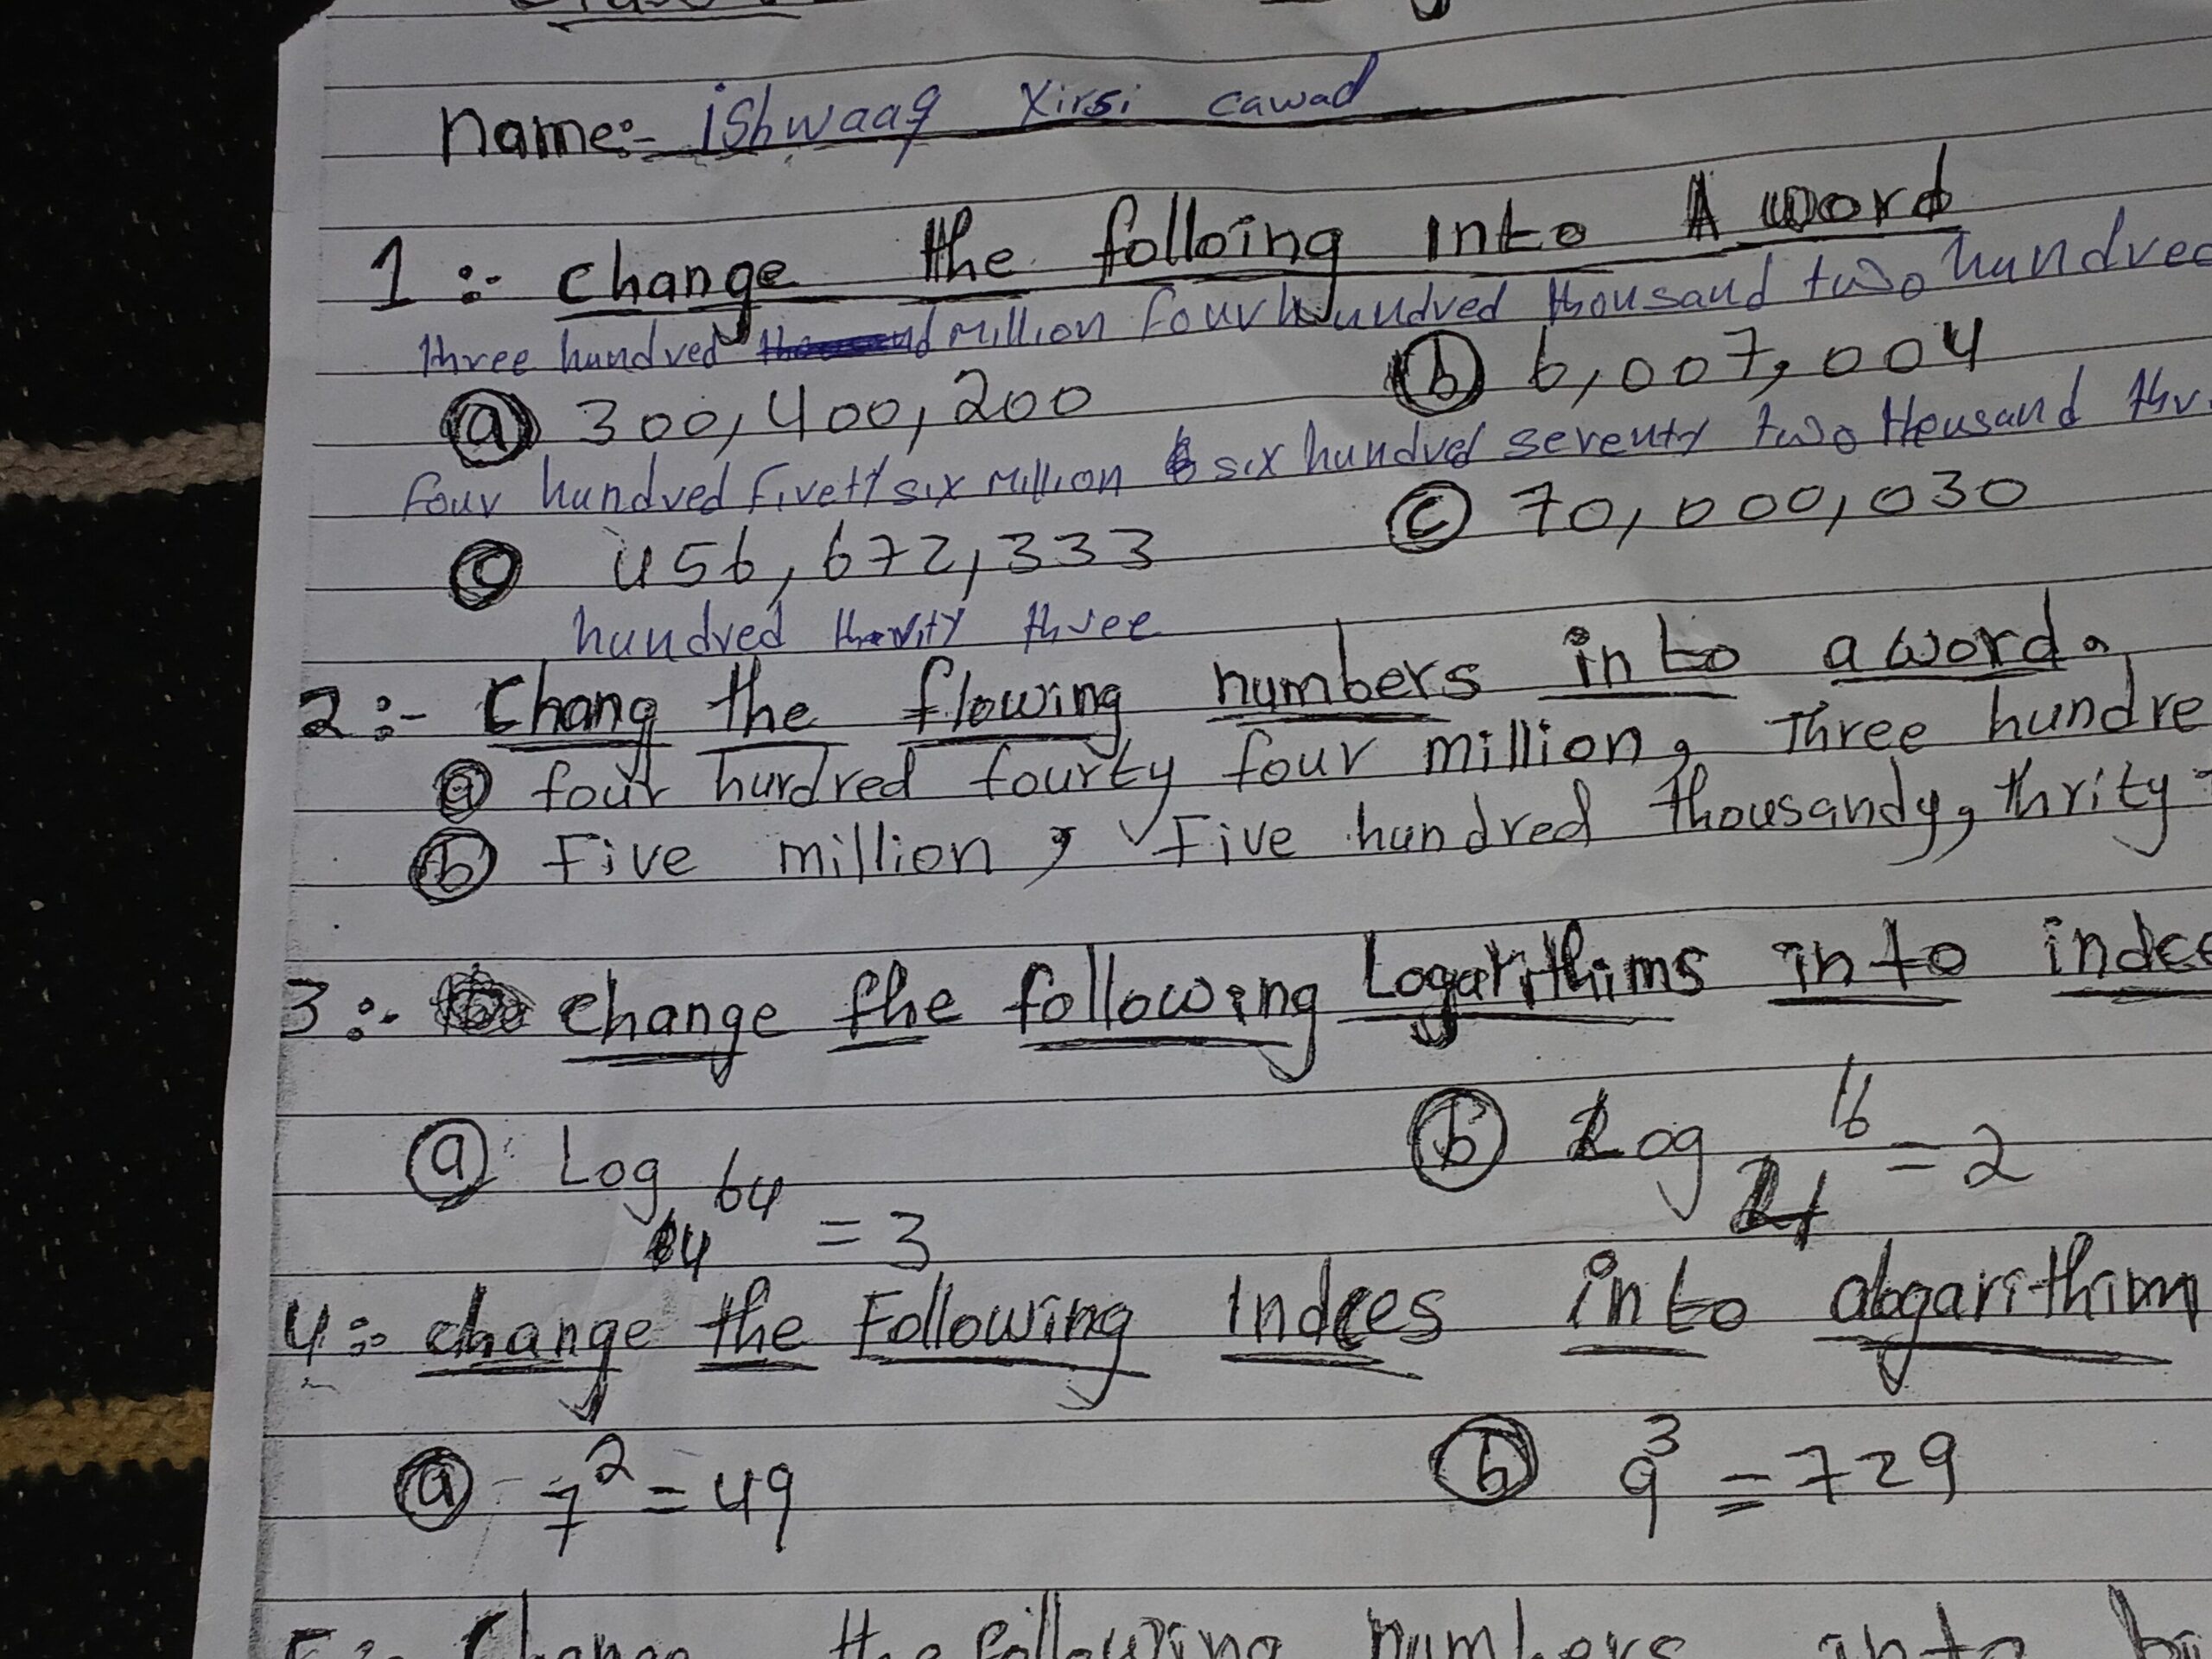 name:- ishwaaq Xirsi cawad
1:- change the folloing into A word
three hundred million four hundred thousand two hundred
(a) 300,400,200 (b) 6,007,004
four hundred fivety six million six hundred seventy two thousand thr
(c) 456,672,333 (c) 70,000,030
hundred thrity three
2:- Chang the flowing numbers into a word.
(a) four hundred fourty four million, Three hundre
(b) Five million, Five hundred thousandy, thrity
3:- change the following Logarithims into indce
(a) Log 64 (b) Log 16 = 2
4 = 3 4
4:- change the Following Indces into alogarithim
(a) 7² = 49 (b) 9³ = 729
5:- Change the following numbers into bi